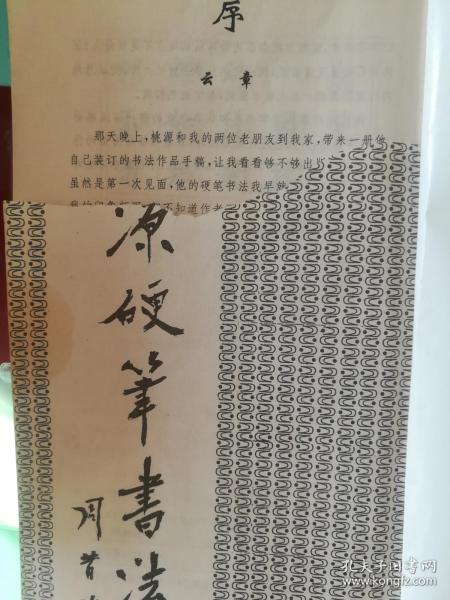 序
云章
那天晚上，桃源和我的两位老朋友到我家，带来一册他
自己装订的书法作品手稿，让我看看够不够出版
虽然是第一次见面，他的硬笔书法我早就
不知道作者
源硬筆書法
周昔
孔夫子旧书网
www.kongfz.com